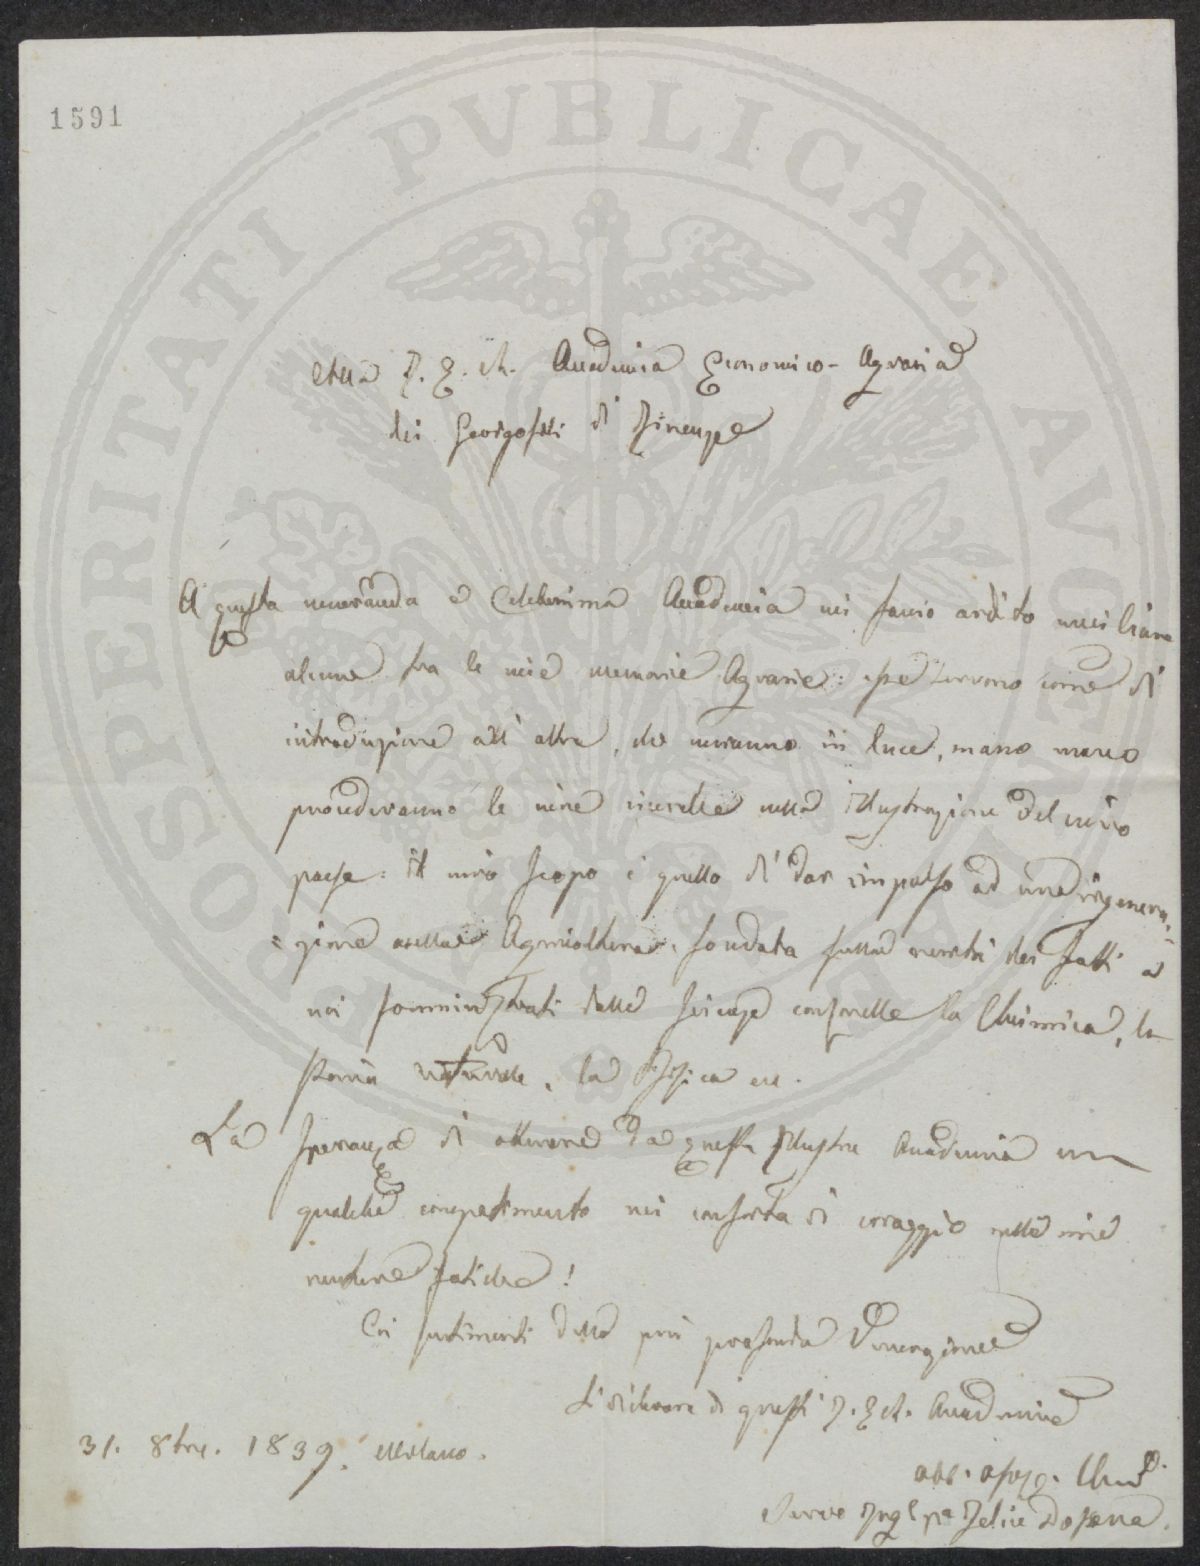 1591
PROSPERITATI PVBLICAE AVGENDAE
Alla I. E. R. Accademia Economico-Agraria
dei Georgofili di Firenze
A questa veneranda e Celeberrima Accademia mi faccio ardito
alcune fra le mie memorie Agrarie: esse servono come di
introduzione all' altre, che verranno in luce, mano mano
procederanno le mie ricerche nella illustrazione del mio
paese: il mio scopo è quello di dar impulso ad una rigenera-
=zione della Agricoltura, fondata sulla verità dei fatti a
noi somministrati dalle scienze la Chimica, la
storia naturale, la Fisica ecc.
La speranza di ottenere da questa Illustre Accademia un
qualche compatimento mi conforta di coraggio nelle mie
fatiche!
Coi sentimenti della più profonda Venerazione
Si dichiara di questa I. E R. Accademia
31. 8bre. 1839. Milano.
Servo Ing.e Felice Dossena.